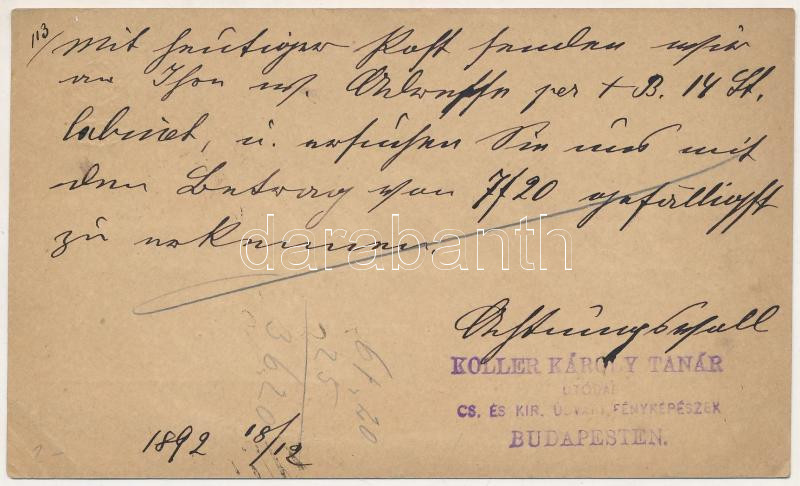 113/ Mit heutiger Post senden wir
an Ihre w. Adresse per + B. 14 St.
Cabinet, u. ersuchen Sie uns mit
den Betrag von 7f20 gefälligst
zu erkennen.
darabanth
Achtungsvoll
KOLLER KÁROLY TANÁR
UTÓDAI
CS. ÉS KIR. UDVARI FÉNYKÉPÉSZEK
BUDAPESTEN.
1892 18/12
61,20
225
36,20